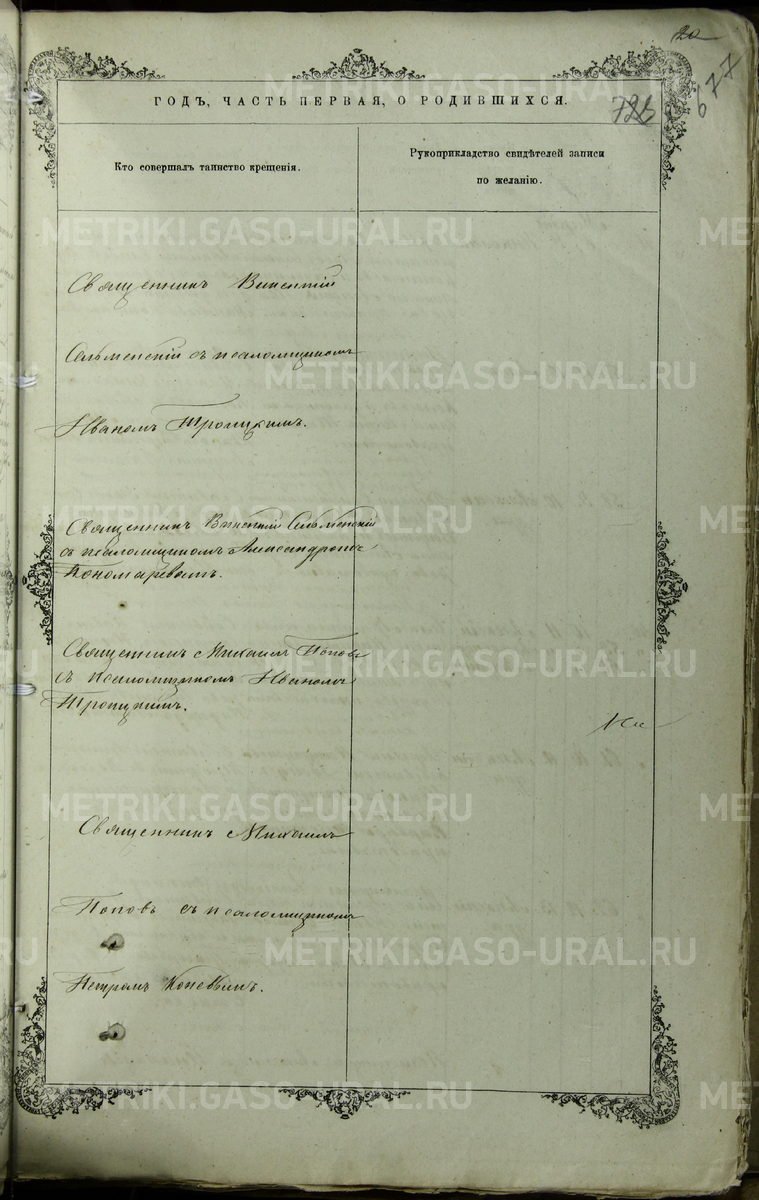 20
677
ГОДЪ, ЧАСТЬ ПЕРВАЯ, О РОДИВШИХСЯ.
726
Кто совершалъ таинство крещенія.
Рукоприкладство свидѣтелей записи
по желанію.
Священникъ Викентій
Сельменскій съ псаломщикомъ
Иваномъ Троицкимъ.
Священникъ Викентій Сельменскій
съ псаломщикомъ Александромъ
Пономаревымъ.
Священникъ Михаилъ Попов
съ псаломщикомъ Иваномъ
Троицкимъ.
Священникъ Михаилъ
Поповъ съ псаломщикомъ
Петромъ Коневымъ.
METRIKI.GASO-URAL.RU